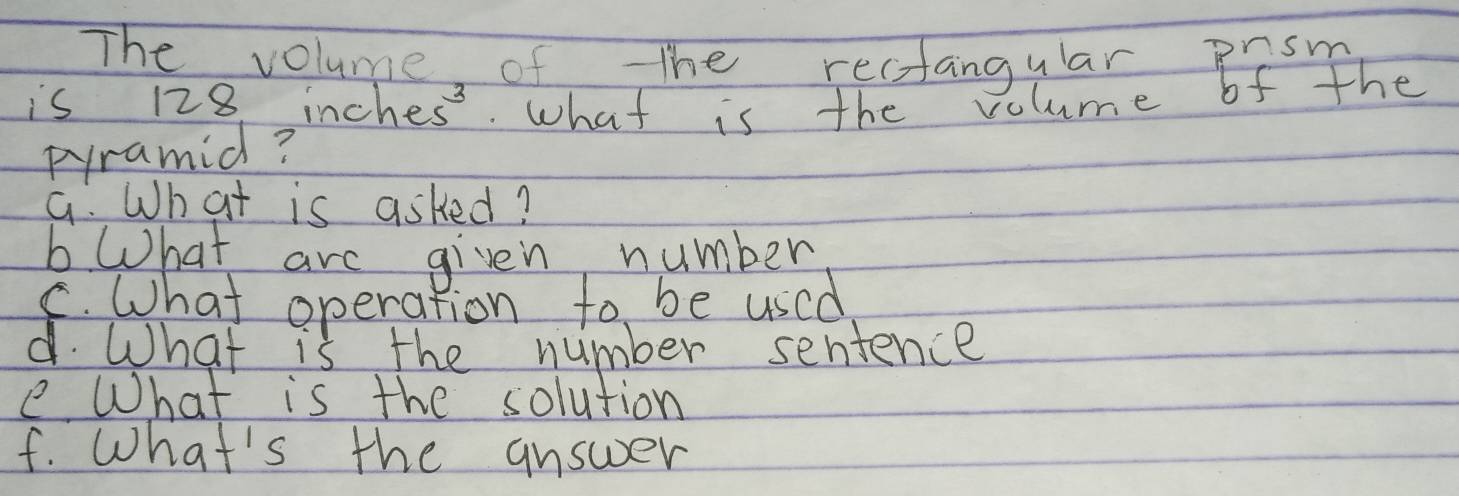 The volume of the rectangular prism
is 128 inches³. What is the volume of the
pyramid?
a. What is asked?
b. What are given number
c. What operation to be used
d. What is the number sentence
e. What is the solution
f. What's the answer